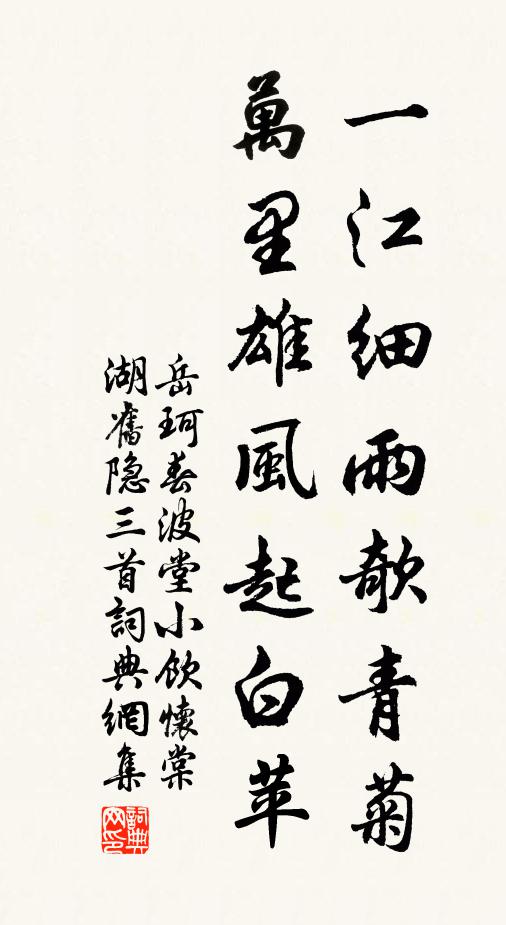 一江細雨欹青菊
萬里雄風起白苹
岳珂春波堂小飲懷棠
湖舊隐三首詞典網集
詞典
网印